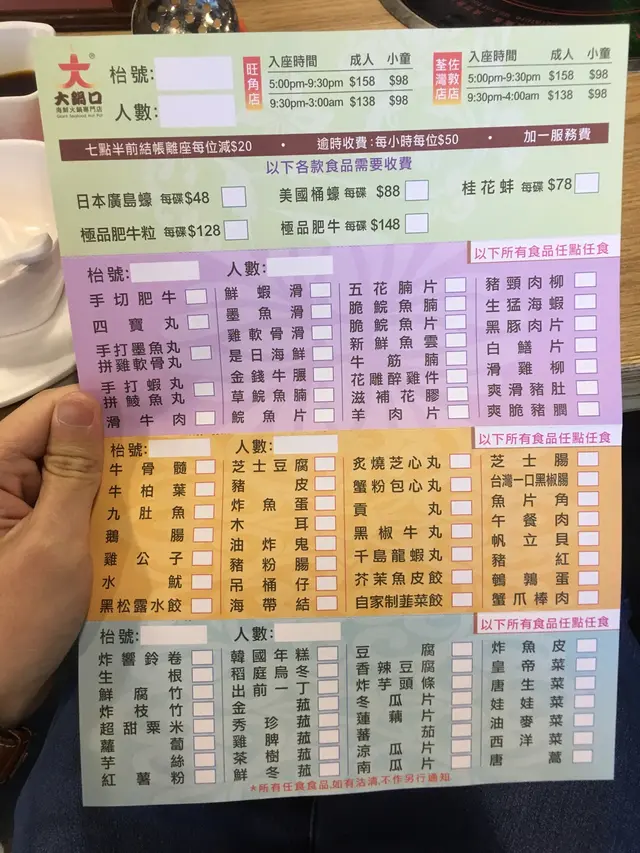 大鍋口
海鮮火鍋專門店
Giant Seafood Hot Pot
枱號:
人數:
旺角店
入座時間 成人 小童
5:00pm-9:30pm $158 $98
9:30pm-3:00am $138 $98
荃灣店 佐敦店
入座時間 成人 小童
5:00pm-9:30pm $158 $98
9:30pm-4:00am $138 $98
七點半前結帳離座每位減$20 • 逾時收費:每小時每位$50 • 加一服務費
以下各款食品需要收費
日本廣島蠔 每碟$48
美國桶蠔 每碟$88
桂花蚌 每碟$78
極品肥牛粒 每碟$128
極品肥牛 每碟$148
以下所有食品任點任食
枱號: 人數:
手切肥牛
四寶丸
手打墨魚丸
拼雞軟骨丸
手打蝦丸
拼鯪魚丸
滑牛肉
鮮蝦滑
墨魚滑
雞軟骨滑
是日海鮮
金錢牛𦟌
草鯇魚腩
鯇魚片
五花腩片
脆鯇魚腩
脆鯇魚片
新鮮魚雲
牛筋腩
花雕醉雞件
滋補花膠
羊肉片
豬頸肉柳
生猛海蝦
黑豚肉片
白鱔片
滑雞柳
爽滑豬肚
爽脆豬膶
以下所有食品任點任食
枱號: 人數:
牛骨髓
牛柏葉
九肚魚
鵝腸
雞公子
水魷
黑松露水餃
芝士豆腐
豬皮
炸魚蛋
木耳
油炸鬼
豬粉腸
吊桶仔
海帶結
炙燒芝心丸
蟹粉包心丸
貢丸
黑椒牛丸
千島龍蝦丸
芥茉魚皮餃
自家制韮菜餃
芝士腸
台灣一口黑椒腸
魚片角
午餐肉
帆立貝
豬紅
鵪鶉蛋
蟹爪棒肉
以下所有食品任點任食
枱號: 人數:
炸響鈴卷
生根
鮮腐竹
炸枝竹
超甜粟米
蘿蔔
芋絲
紅薯粉
韓國年糕
稻庭烏冬
出前一丁
金菇
秀珍菇
雞脾菇
茶樹菇
鮮冬菇
豆腐
香辣豆腐
炸芋頭條
冬瓜片
蓮藕片
蕃茄
涼瓜片
南瓜片
炸魚皮
皇帝菜
唐生菜
娃娃菜
油麥菜
西洋菜
唐蒿
*所有任食食品,如有沽清,不作另行通知